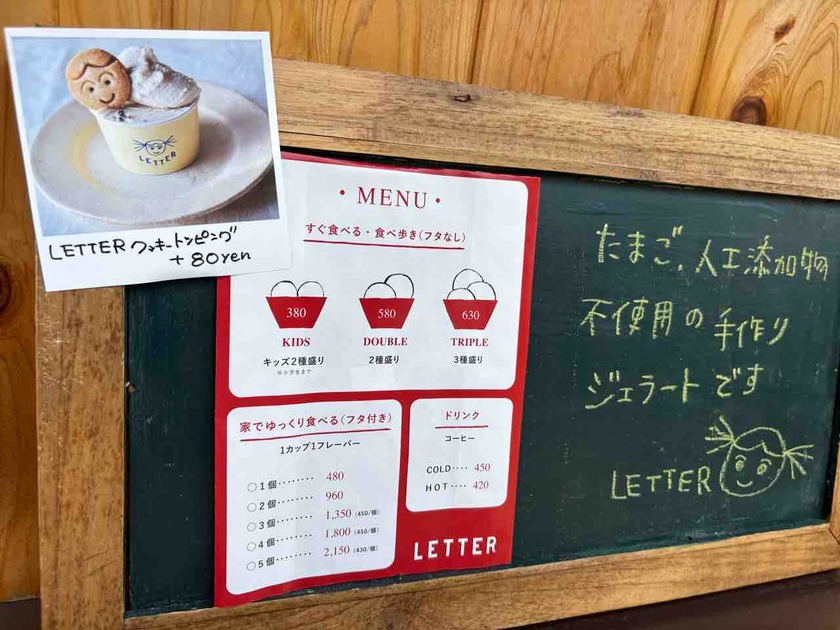 LETTER
LETTER クッキートッピング
+80yen
・MENU・
すぐ食べる・食べ歩き(フタなし)
380
580
630
KIDS
DOUBLE
TRIPLE
キッズ2種盛り
2種盛り
3種盛り
※小学生まで
家でゆっくり食べる(フタ付き)
1カップ1フレーバー
○1個········ 480
○2個········ 960
○3個········ 1,350 (450/個)
○4個········ 1,800 (450/個)
○5個········ 2,150 (430/個)
ドリンク
コーヒー
COLD···· 450
HOT···· 420
LETTER
たまご、人工添加物
不使用の手作り
ジェラートです
LETTER